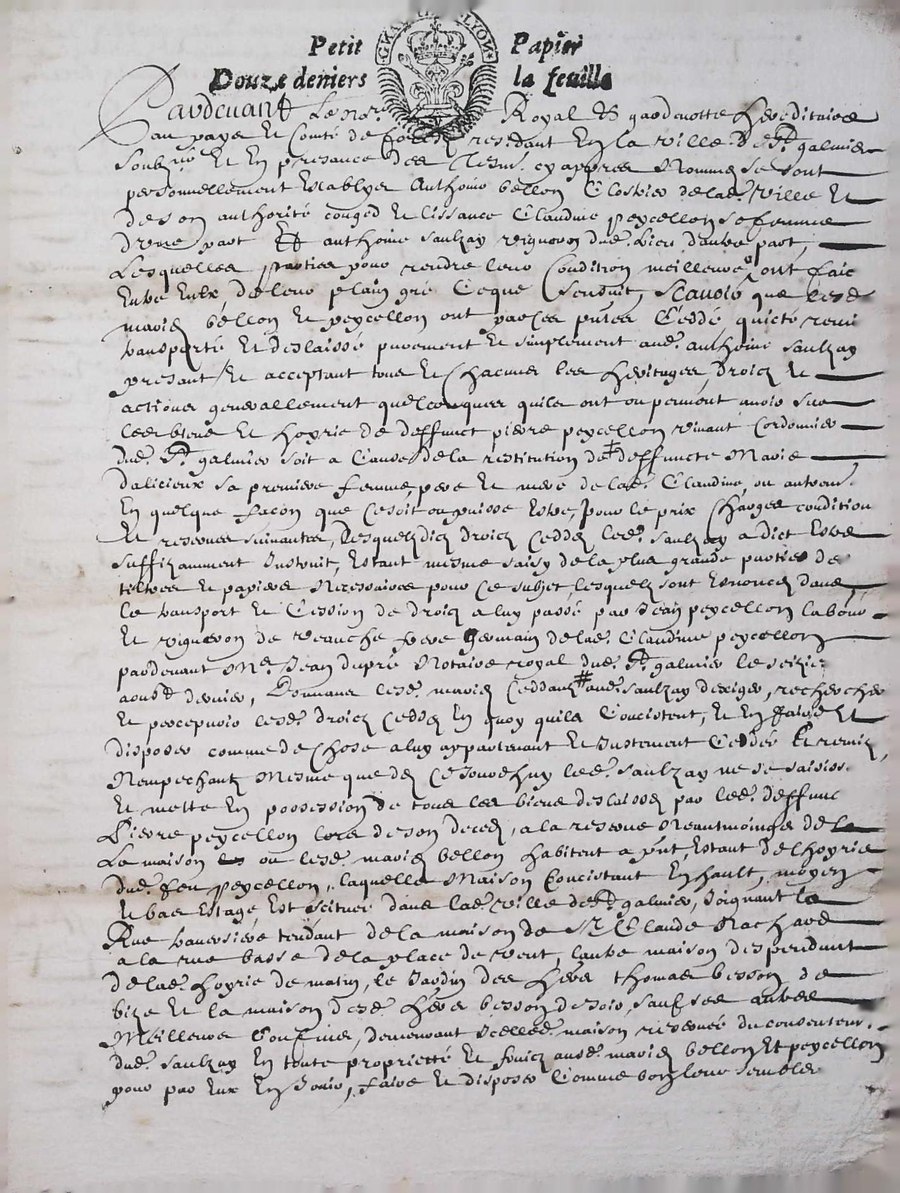 GNAL. DE LYON
Petit Papier
Douze deniers la feuille
Pardevant Le nore Royal & gardenotte hereditaire
au pays et Comté de forestz residant En la ville de St galmier
soubné et En presance des tesm. cy appres Nommes se sont
personnellement establys Anthoine bellon Clostrier de lade. Ville et
de son authorité conged et lissance Claudine peycellon se femme
d'une part Et anthoine saulzay vigneron dud. Lieu d'autre part,
Lesquelles parties pour rendre leur Condition meilleure ont faic
Entre Eulx, de leur plain gré Ceque sensuit, scavoir que lesd.
mariez bellon et peycellon ont par ces pntes Ceddé quicté remi
transporté et deslaissé purement et simplement aud. anthoine saulzay
presant et acceptant tous et Chacuns les heritages, droicz et
actions generallement quelconques quils ont ou peuvent avoir sur
les biens et hoyrie de deffunct pierre peycellon vivant Cordonnier
dud. St galmier soit a Cause de la restitution de deffuncte Marie
dalicieux sa premiere femme, pere et mere de lade. Claudine, ou autrem.
En quelque facon que Ce soit ou puisse Estre, pour le prix Charges condition
et reserves suivantes, Desquelz dicz droicz ceddez led. saulzay a dict Estre
suffizamment Instruit, Estant mesme saisy de la plus grande parties de
tiltres et papiers Necessaires pour Ce subjet, lesquelz sont Enoncez dans
le transport et Cession de droicz a luy passé par Jean peycellon labour
et vigneron de veauche frere germain de lade. Claudine peycellon
pardevant Me. Jean dupré Notaire royal dud. St galmier le seizie
aoust dernier, Donnans lesd. mariez Ceddantz aud. saulzay dexiger, rechercher
et percepvoir lesd. droicz Ceddez En quoy quils Concistent, et En faire et
disposer comme de Chose a luy appartenant et Justement Ceddée Et remiz,
Nempechantz Mesme que dez Cejourdhuy led. saulzay ne se saisiss.
et mette En possession de tous les biens deslaissez par led. deffunc
Pierre peycellon lors de son decez, a la reserve Neantmoings de la
La maison ou lesd. mariez bellon habitent a pnt, Estant de lhoyrie
dud. feu peycellon, laquelle Maison Concistant En hault, moyen
et bas Estage, Est scituee dans lade. ville de St galmier, Joignant la
Rue traversiere tendant de la maison de Sr. Claude Rachard
a la rue basse de la place de vent, lautre maison desperdant
de lade. hoyrie de matin, le Jardin des hers thomas besson de
bize et la maison desd. hers besson de soir, sauf ses autres
Meilleurs Confins, demeurant Icelle maison reservée du consentem.
dud. saulzay En toute proprietté et fruicz ausd. mariez bellon Et peycellon
pour par Eux En Jouir, faire et disposer Comme bon leur semblera